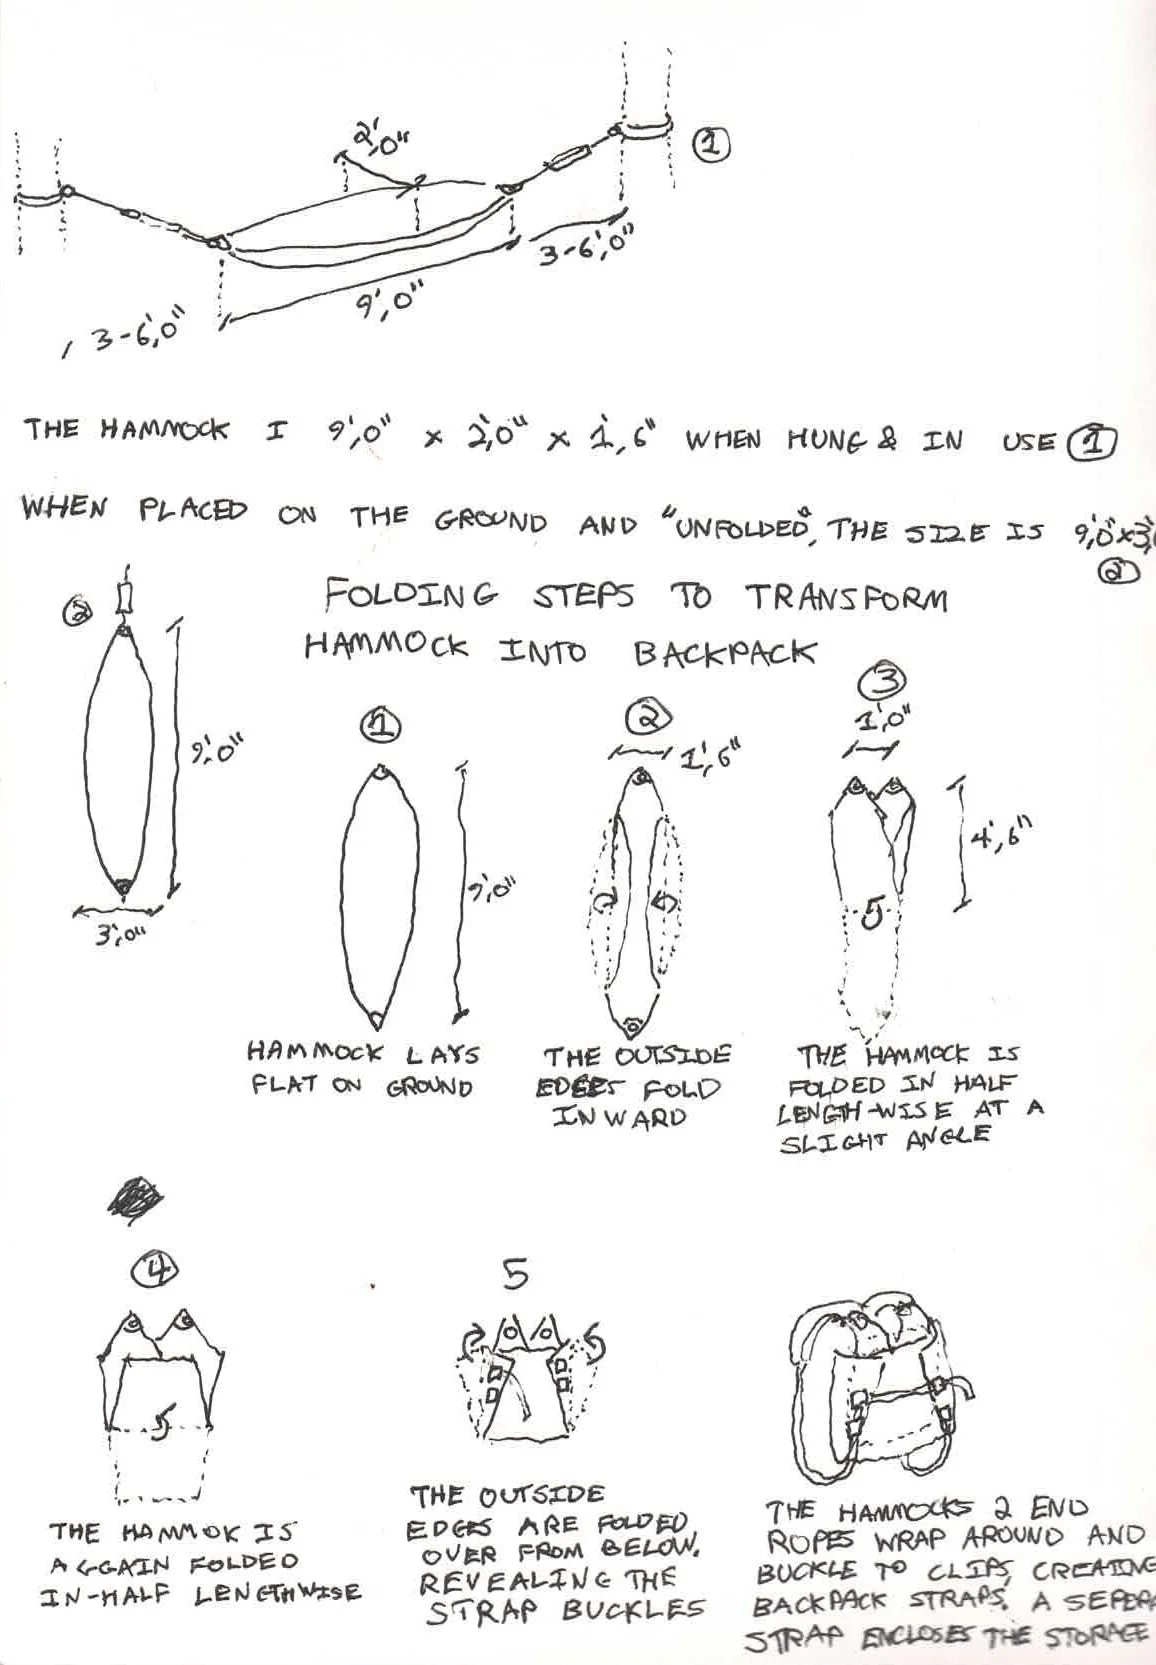 2',0"
1
3-6',0"
9',0"
3-6',0"
THE HAMMOCK I 9',0" x 2',0" x 1',6" WHEN HUNG & IN USE 1
WHEN PLACED ON THE GROUND AND "UNFOLDED", THE SIZE IS 9',0"x3',
2
FOLDING STEPS TO TRANSFORM
HAMMOCK INTO BACKPACK
2
9',0"
3',0"
1
9',0"
HAMMOCK LAYS
FLAT ON GROUND
2
1',6"
THE OUTSIDE
EDGES FOLD
INWARD
3
1',0"
4',6"
THE HAMMOCK IS
FOLDED IN HALF
LENGTH-WISE AT A
SLIGHT ANGLE
4
THE HAMMOK IS
AGGAIN FOLDED
IN-HALF LENGTHWISE
5
THE OUTSIDE
EDGES ARE FOLDED
OVER FROM BELOW,
REVEALING THE
STRAP BUCKLES
THE HAMMOCKS 2 END
ROPES WRAP AROUND AND
BUCKLE TO CLIPS, CREATING
BACKPACK STRAPS. A SEPERA
STRAP ENCLOSES THE STORAGE